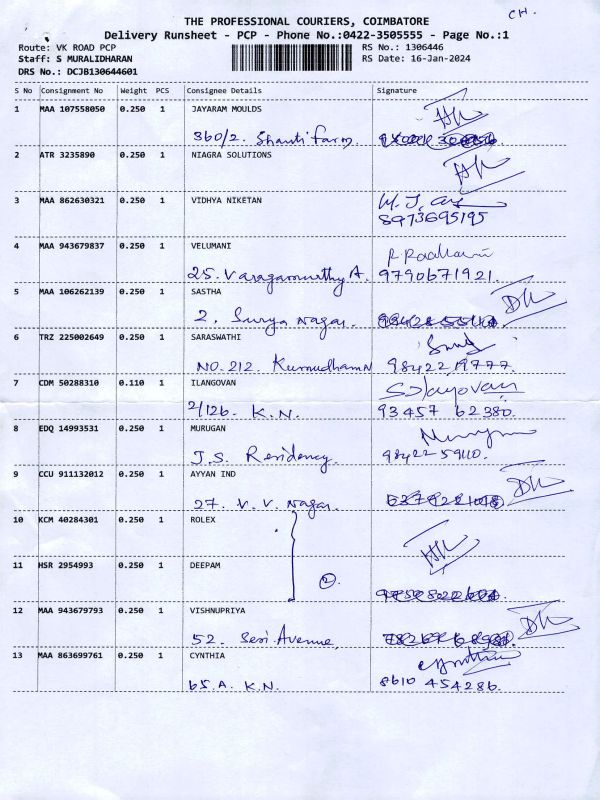 CH.
THE PROFESSIONAL COURIERS, COIMBATORE
Delivery Runsheet - PCP - Phone No.:0422-3505555 - Page No.:1
Route: VK ROAD PCP RS No.: 1306446
Staff: S MURALIDHARAN RS Date: 16-Jan-2024
DRS No.: DCJB130644601
S No Consignment No Weight PCS Consignee Details Signature
1 MAA 107558050 0.250 1 JAYARAM MOULDS
360/2. Shanti farm.
2 ATR 3235890 0.250 1 NIAGRA SOLUTIONS
3 MAA 862630321 0.250 1 VIDHYA NIKETAN
8973695195
4 MAA 943679837 0.250 1 VELUMANI
25. Varagamurthy A. 9790671921.
5 MAA 106262139 0.250 1 SASTHA DK
2. Surya Nagar.
6 TRZ 225002649 0.250 1 SARASWATHI
NO. 212. Kumudham N 98422 19777.
7 CDM 50288310 0.110 1 ILANGOVAN
2/126. K.N. 93457 62380.
8 EDQ 14993531 0.250 1 MURUGAN
J.S. Residency. 98422 59110.
9 CCU 911132012 0.250 1 AYYAN IND DK
27. V.V. Nagar.
10 KCM 40284301 0.250 1 ROLEX
11 HSR 2954993 0.250 1 DEEPAM
2.
12 MAA 943679793 0.250 1 VISHNUPRIYA DK
52. Seri Avenue,
13 MAA 863699761 0.250 1 CYNTHIA Cynthia
65.A. K.N. 8610 454286.